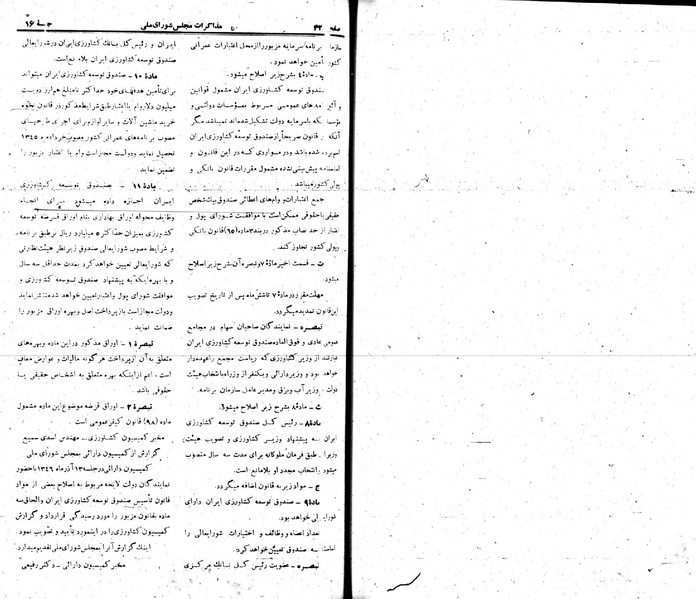 صفحه ۴۴
مذاکرات مجلس شورای ملی
جلسه ۱۶
برنامه/سرمایه مزبور را از محل اعتبارات عمرانی
کشور تأمین خواهد نمود.
پ ـ مادهٔ ۶ بشرح زیر اصلاح میشود.
صندوق توسعه کشاورزی ایران مشمول قوانین
عمومی مربوط بمؤسسات دولتی و
که باسرمایه دولت تشکیل شده‌اند نمیباشد مگر
آنکه در قانون صریحاً از صندوق توسعه کشاورزی ایران
شده باشد و در مواردی که در این قانون و
اساسنامه پیش‌بینی نشده مشمول مقررات قانون بانکی و
پولی کشور میباشد.
جمع اعتبارات و وامهای اعطائی صندوق بیک شخص
حقیقی یا حقوقی ممکن است با موافقت شورای پول و
اعتبار از حد نصاب مذکور در بند ۳ ماده (۶۵) قانون بانکی
و پولی کشور تجاوز کند.
ت ـ قسمت اخیر مادهٔ ۷ و تبصره آن بشرح زیر اصلاح
میشود.
مهلت مقرر در مادهٔ ۷ تا شش ماه پس از تاریخ تصویب
این قانون تمدید میگردد.
تبصره ـ نمایندگان صاحبان سهام در مجامع
عمومی عادی و فوق‌العاده صندوق توسعه کشاورزی ایران
عبارتند از وزیر کشاورزی که ریاست مجمع را عهده‌دار
خواهد بود و وزیر دارائی و یکنفر از وزراء بانتخاب هیئت
دولت ـ وزیر آب و برق و مدیر عامل سازمان برنامه.
ث ـ مادهٔ ۸ بشرح زیر اصلاح میشود:
مادهٔ ۸ ـ رئیس کل صندوق توسعه کشاورزی
ایران به پیشنهاد وزیر کشاورزی و تصویب هیئت
وزیران طبق فرمان ملوکانه برای مدت سه سال منصوب
میشود و انتخاب مجدد او بلامانع است.
ج ـ مواد زیر به قانون اضافه میگردد.
مادهٔ ۹ ـ صندوق توسعه کشاورزی ایران دارای
شورایعالی خواهد بود.
تعداد اعضاء و وظائف و اختیارات شورایعالی را
اساسنامه صندوق تعیین خواهد کرد.
تبصره ـ عضویت رئیس کل بانک مرکزی
ایران و رئیس کل بانک کشاورزی ایران در شورایعالی
صندوق توسعه کشاورزی ایران بلامانع است.
مادهٔ ۱۰ ـ صندوق توسعه کشاورزی ایران میتواند
برای تأمین هدفهای خود حداکثر تا مبلغ هم‌ارز دویست
میلیون دلار وام یا اعتبار طبق شرایط مذکور در قانون نحوه
خرید ماشین آلات و سایر لوازم برای اجرای طرحهای
مصوب برنامه‌های عمرانی کشور مصوب خرداد ماه ۱۳۴۵
تحصیل نماید و دولت مجاز است وام یا اعتبار مزبور را
تضمین نماید.
مادهٔ ۱۱ ـ صندوق توسعه کشاورزی
ایران اجازه داده میشود برای انجام
وظایف محوله اوراق بهاداری بنام اوراق قرضه توسعه
کشاورزی بمیزان حداکثر ۵ میلیارد ریال بر طبق برنامه
و شرایط مصوب شورایعالی صندوق زیر نظر هیئت نظارتی
که شورایعالی تعیین خواهد کرد بمدت حداقل سه سال
و با بهره‌ایکه به پیشنهاد صندوق توسعه کشاورزی و
موافقت شورای پول و اعتبار تعیین خواهد شد منتشر نماید
و دولت مجاز است بازپرداخت اصل و بهره اوراق مزبور را
ضمانت نماید.
تبصرهٔ ۱ ـ اوراق مذکور در این ماده و بهره‌های
متعلق به آن از پرداخت هرگونه مالیات و عوارض معاف
است، اعم از اینکه بهره متعلق به اشخاص حقیقی یا
حقوقی باشد.
تبصرهٔ ۲ ـ اوراق قرضه موضوع این ماده مشمول
ماده (۹۸) قانون کیفر عمومی است.
مخبر کمیسیون کشاورزی ـ مهندس اسدی سمیع
گزارش از کمیسیون دارائی بمجلس شورای ملی
کمیسیون دارائی در جلسه ۱۳ آذر ماه ۱۳۴۶ با حضور
نمایندگان دولت لایحه مربوط به اصلاح بعضی از مواد
قانون تأسیس صندوق توسعه کشاورزی ایران و الحاق سه
ماده بقانون مزبور را مورد رسیدگی قرار داد و گزارش
کمیسیون کشاورزی را در اینمورد تأیید و تصویب نمود.
اینک گزارش آنرا بمجلس شورای ملی تقدیم میدارد.
مخبر کمیسیون دارائی ـ دکتر رفیعی